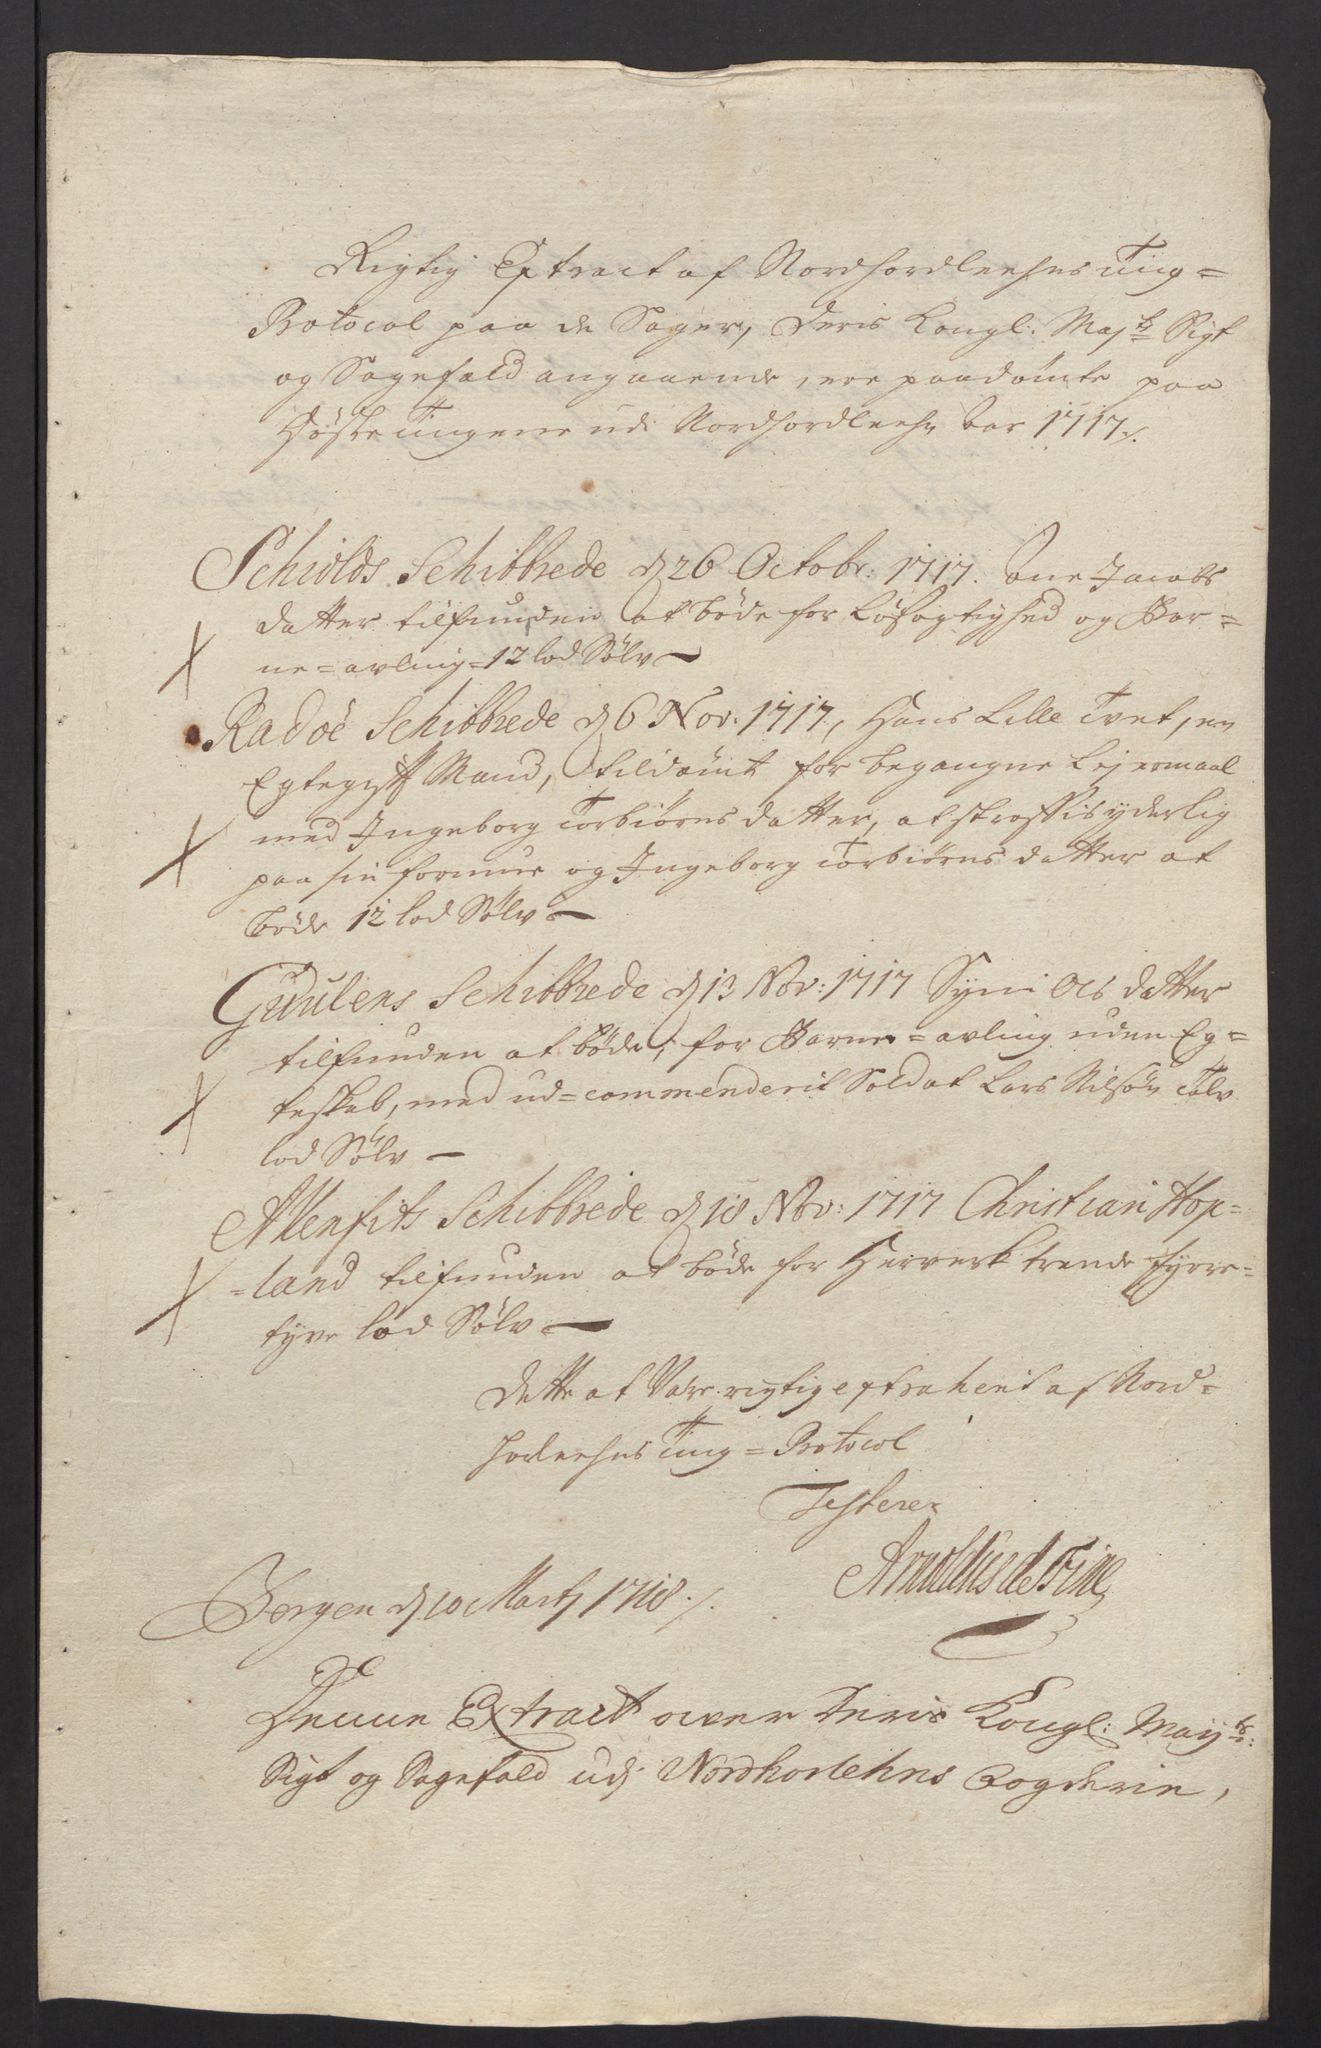 Rigtig Extract af Nordhordlehns Ting=
Protocol paa de Sager, Deris Kongl: Maj:ts Sigt
og Sagefald angaaende, ere paadömte paa
Höste Tingene udi Nordhordlehn Aar 1717/.
Schiolds Schibbrede d 26 Octobr: 1717. Ane Jacobs
datter tilfunden at böde for Löβagtighed og Bar=
ne=avling = 12 lod Sölv —
Radöe Schibbrede d 6 Nov: 1717, Hans Lille Tvet, en
Egtegift Mand, tildömt for begangne Lejermaal
med Ingeborg Torbiörns datter, at straffis yderlig
paa sin formue og Ingeborg Torbiörns datter at
böde 12 lod Sölv —
Gudulens Schibbrede d 13 Nov: 1717 Syni Ols datter
tilfunden at böde, for Barne=avling uden Eg=
teskab, med ud=commenderit Soldat Lars Nilsön Tolv
lod Sölv —
Allenfits Schibbrede d 18 Nov: 1717 Christian Hop=
=land tilfunden at böde for Herverk trende fyrre=
tyve lod Sölv —
Dette at Være rigtig extraherit af Nord=
horlehns Ting=Protocol
Testerer
Arnoldus de Fine
Bergen d 10 Martj 1718 ./.
Denne Extract over Deris Kongl: May:ts:
Sigt og Sagefald udj Nordhorlehns Fogderie,